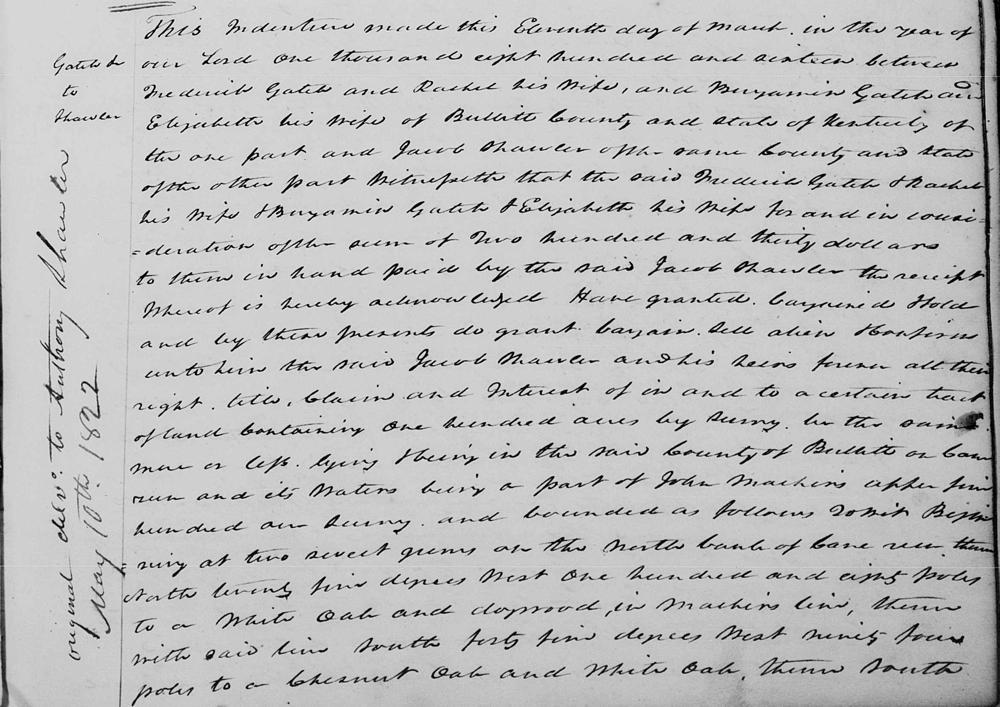 Gatch &c
to
Shawler
original delvd. to Anthony Shawler
May 10th. 1822
This Indenture made this Eleventh day of March in the year of
our Lord One thousand eight hundred and sixteen between
Frederick Gatch and Rachel his Wife, and Benjamin Gatch and
Elizabeth his Wife of Bullitt County and State of Kentucky of
the one part and Jacob Shawler of the same County and State
of the other part Witnesseth that the said Frederick Gatch & Rachel
his Wife & Benjamin Gatch & Elizabeth his Wife for and in consi=
=deration of the sum of Two hundred and thirty dollars
to them in hand paid by the said Jacob Shawler the receipt
Whereof is hereby acknowledged Have granted. bargained & sold
and by these presents do grant bargain. Sell alien & confirm
unto him the said Jacob Shawler and his heirs forever all their
right. title, Claim and Interest of in and to a certain tract
of land Containing One hundred acres by Survey. be the same
more or less. lying & being in the said County of Bullitt on Cane
run and its Waters being a part of John Machirs upper five
hundred acre Survey. and bounded as follows Towit Begin
ning at two sweet gums on the North bank of Cane run, thence
North twenty five degrees West One hundred and eighty poles
to a White Oak and dogwood, in Machirs line, thence
with said line South forty five degrees West ninety four
poles to a Chesnut Oak and White Oak, thence South